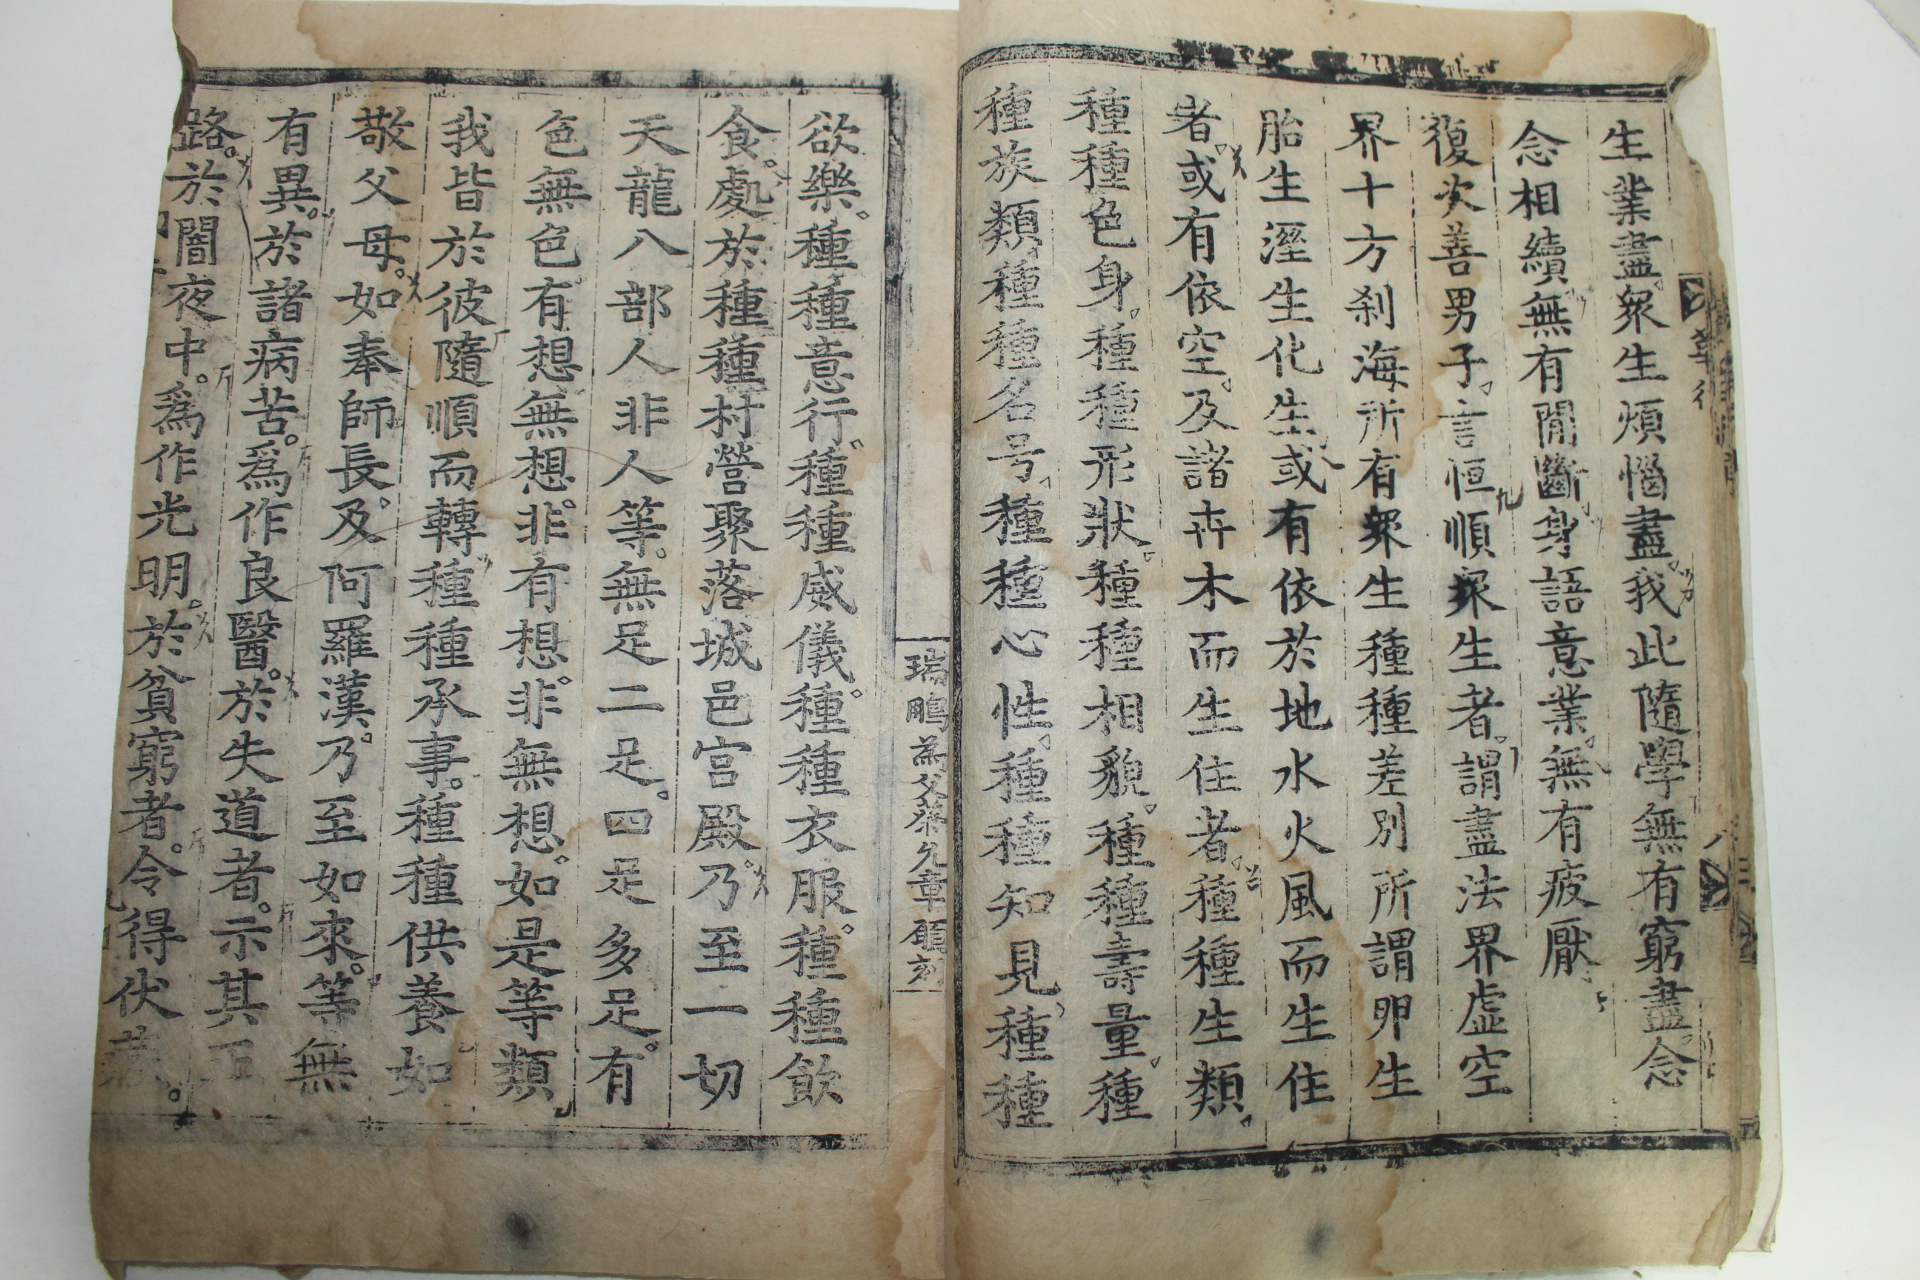 生業盡衆生煩惱盡我此隨學無有窮盡念
念相續無有閒斷身語意業無有疲厭
復次善男子言恒順衆生者謂盡法界虛空
界十方刹海所有衆生種種差別所謂卵生
胎生溼生化生或有依於地水火風而生住
者或有依空及諸卉木而生住者種種生類
種種色身種種形狀種種相貌種種壽量種
種族類種種名号種種心性種種知見種種
欲樂種種意行種種威儀種種衣服種種飮
食處於種種村營聚落城邑宮殿乃至一切
天龍八部人非人等無足二足四足多足有
色無色有想無想非有想非無想如是等類
我皆於彼隨順而轉種種承事種種供養如
敬父母如奉師長及阿羅漢乃至如來等無
有異於諸病苦爲作良醫於失道者示其正
路於闇夜中爲作光明於貧窮者令得伏藏
瑞鵰為父蔡允章願刻